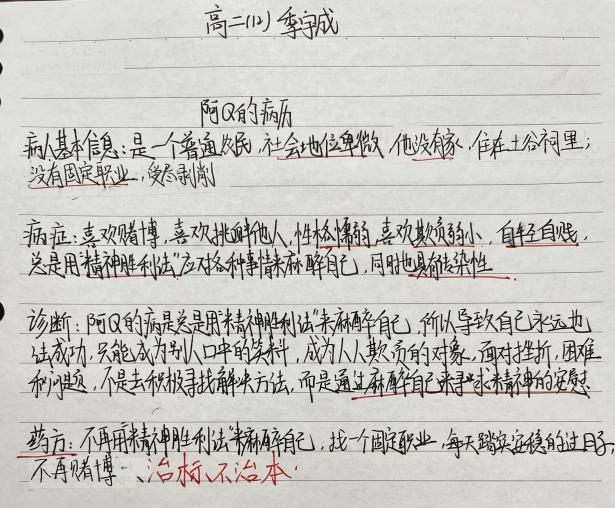 高二(12) 季宇成
阿Q的病历
病人基本信息：是一个普通农民，社会地位卑微，他没有家，住在土谷祠里；
没有固定职业，受尽剥削
病症：喜欢赌博，喜欢挑衅他人，性格懦弱，喜欢欺负弱小，自轻自贱，
总是用"精神胜利法"应对各种事情来麻醉自己，同时也具有传染性
诊断：阿Q的病是总是用"精神胜利法"来麻醉自己，所以导致自己永远也
法成功，只能成为别人口中的笑料，成为人人欺负的对象，面对挫折，困难
和问题，不是去积极寻找解决方法，而是通过麻醉自己来寻求精神的安慰
药方：不再用"精神胜利法"来麻醉自己，找一个固定职业，每天踏实安稳的过日子，
不再赌博 、治标、不治本.